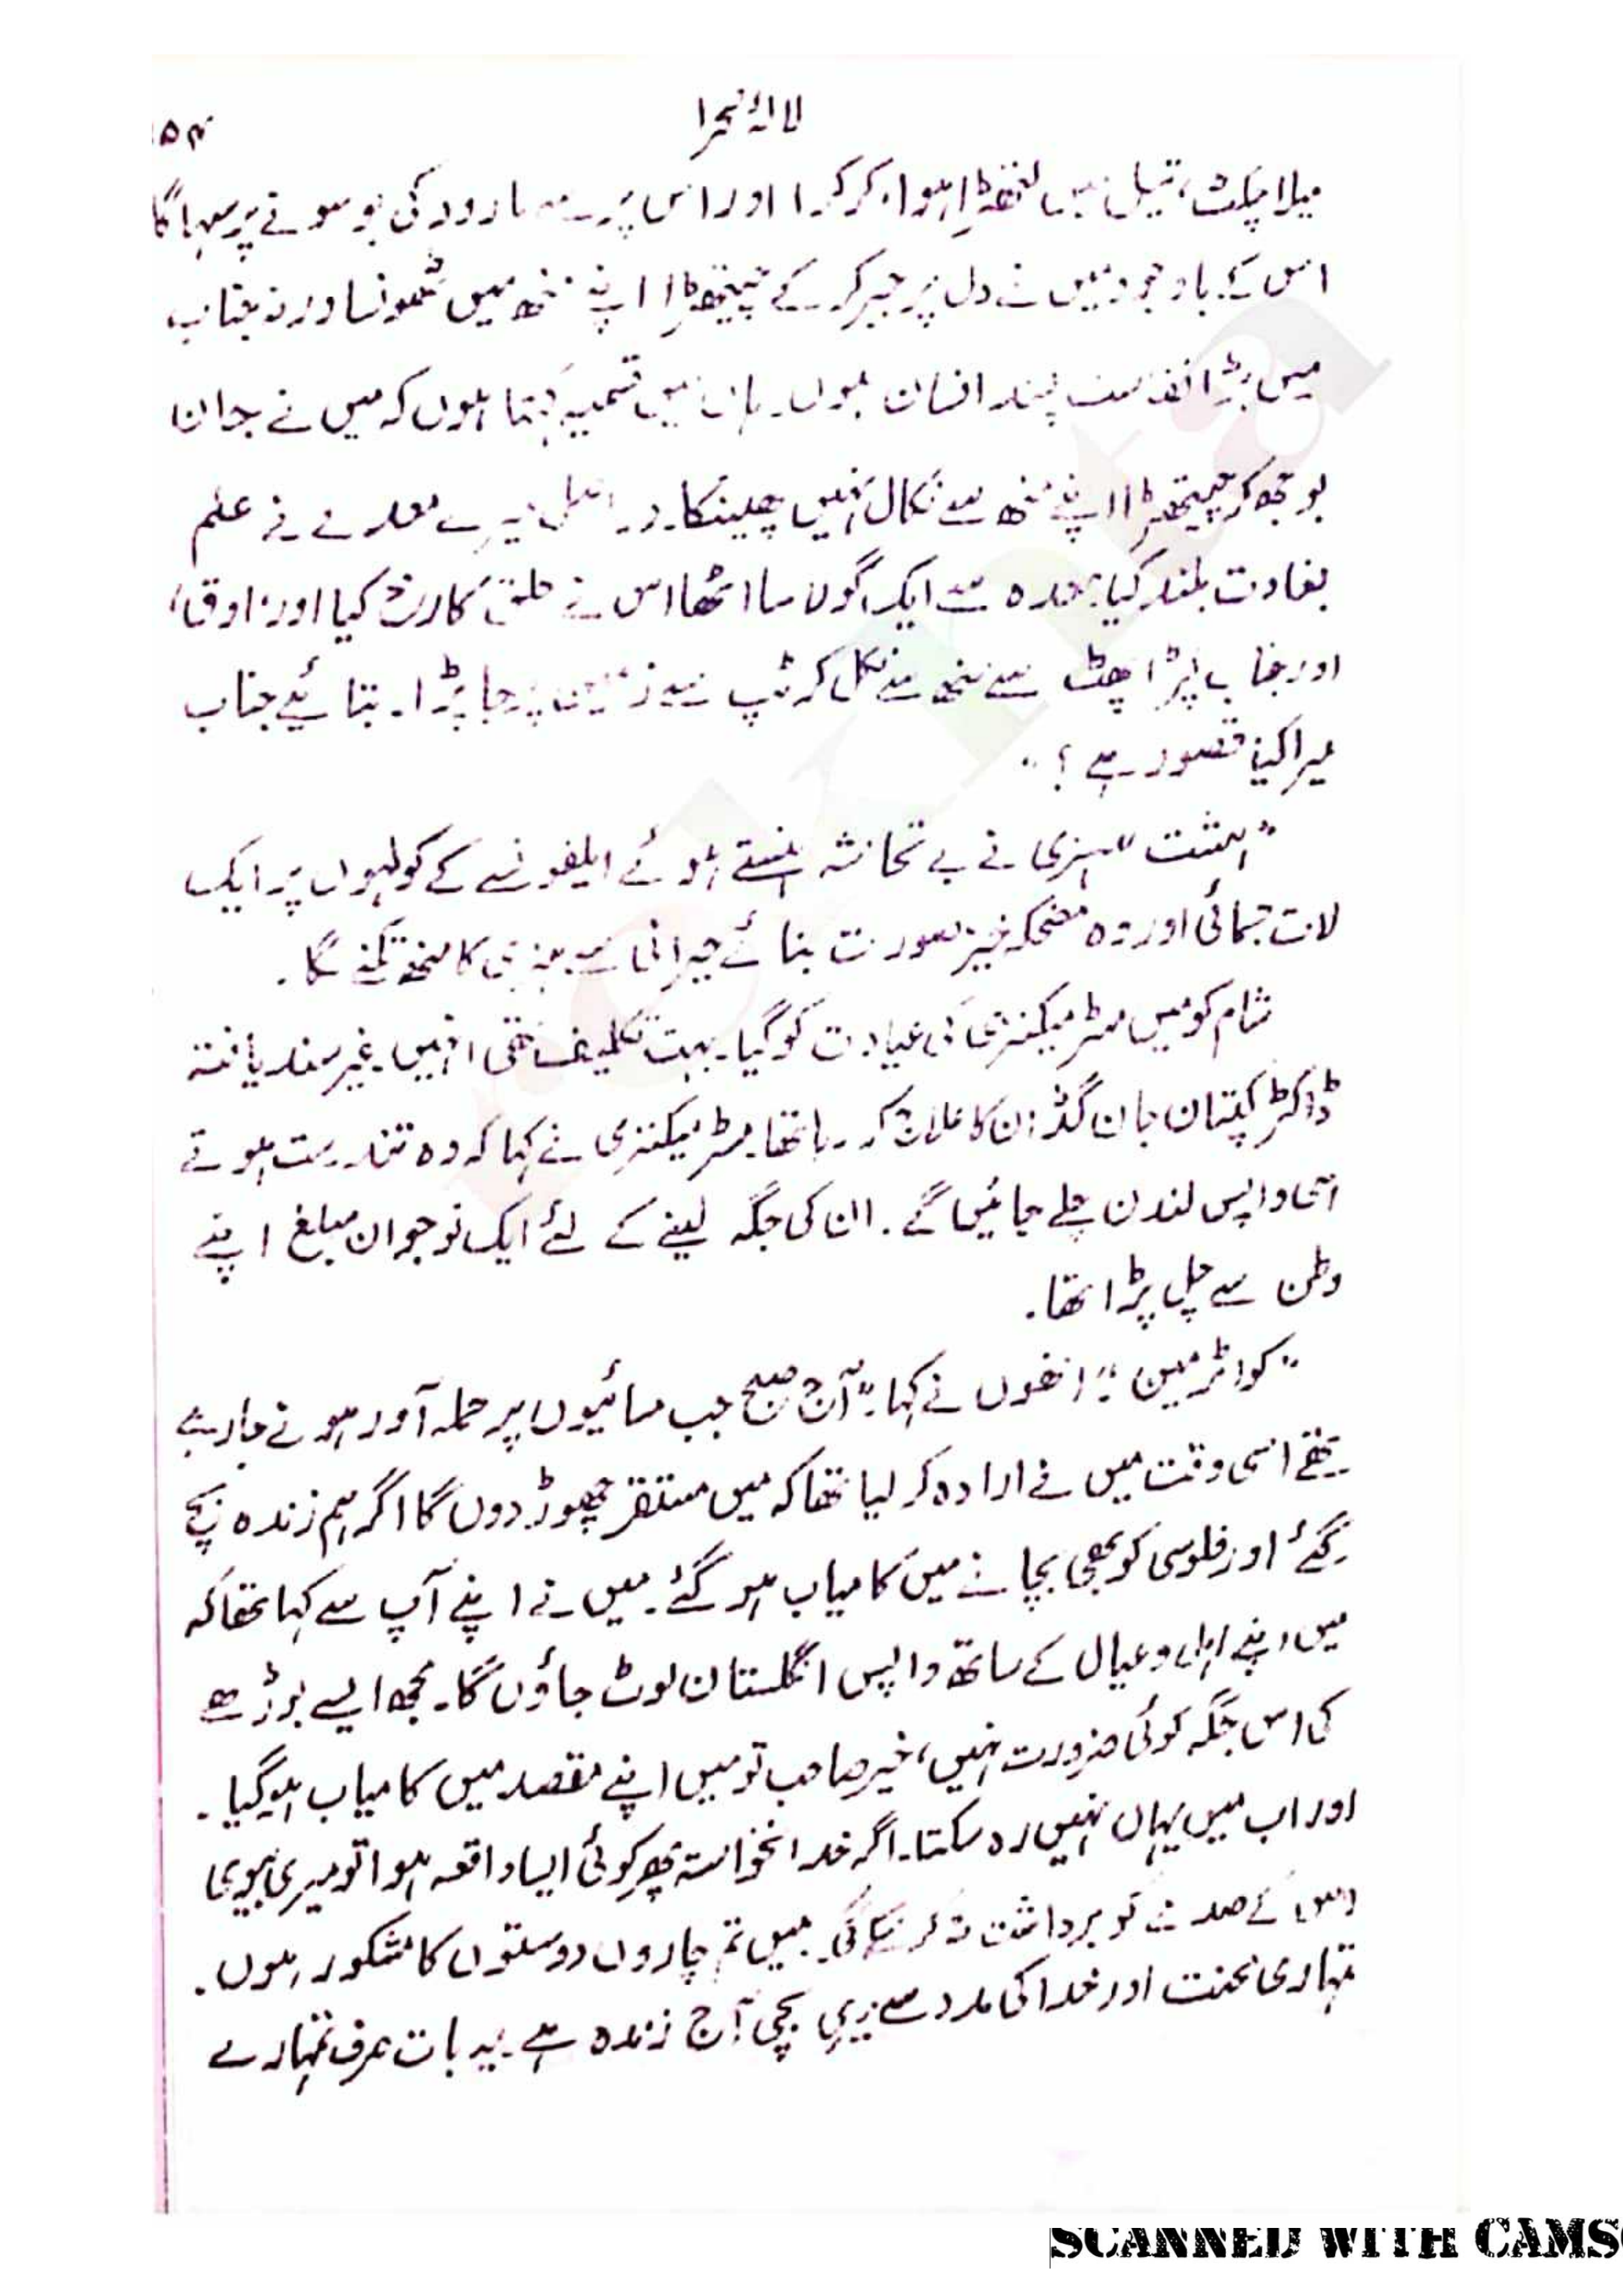 لالۂ صحرا
۱۵۴
میلا چکٹ، تیل میں لتھڑا ہوا، کرکرا اور اس پر سے بارود کی بو سونے پر سہاگا
اس کے باوجود میں نے دل پر جبر کر کے چیتھڑا اپنے منھ میں ٹھونسا ورنہ جناب
میں بڑا نفاست پسند انسان ہوں۔ ہاں میں قسمیہ کہتا ہوں کہ میں نے جان
بوجھ کر چیتھڑا اپنے منھ سے نکال نہیں پھینکا۔ در اصل میرے معدے نے علم
بغاوت بلند کیا، معدہ سے ایک گولا سا اٹھا اس نے حلق کا رخ کیا اور "اوق"
اور جناب چیتھڑا پھٹ سے منھ سے نکل کر ٹپ سے زمین پر جا پڑا۔ بتائیے جناب
میرا کیا قصور ہے؟"
"ہشت" ہنری نے بے تحاشہ ہنستے ہوئے ایلفونسے کے کولہوں پر ایک
لات جمائی اور وہ مضحکہ خیز صورت بنائے حیرانی سے ہنری کا منھ تکنے لگا۔
شام کو میں مسٹر میکنزی کی عیادت کو گیا۔ بہت تکلیف تھی انہیں۔ غیر سند یافتہ
ڈاکٹر کپتان جان گڈ ان کا علاج کر رہا تھا۔ مسٹر میکنزی نے کہا کہ وہ تندرست ہوتے
ہی واپس لندن چلے جائیں گے۔ ان کی جگہ لینے کے لئے ایک نوجوان مبلغ اپنے
وطن سے چل پڑا تھا۔
"کواٹرمین" انھوں نے کہا۔ "آج صبح جب مسائیوں پر حملہ آور ہونے جا رہے
تھے اسی وقت میں نے ارادہ کر لیا تھا کہ میں مستقر چھوڑ دوں گا اگر ہم زندہ بچ
گئے اور فلوسی کو بھی بچانے میں کامیاب ہو گئے۔ میں نے اپنے آپ سے کہا تھا کہ
میں اپنے اہل و عیال کے ساتھ واپس انگلستان لوٹ جاؤں گا۔ مجھ ایسے بوڑھے
کی اس جگہ کوئی ضرورت نہیں، خیر صاحب تو میں اپنے مقصد میں کامیاب ہو گیا۔
اور اب میں یہاں نہیں رہ سکتا۔ اگر خدا نخواستہ پھر کوئی ایسا واقعہ ہوا تو میری بیوی
اس کے صدمے کو برداشت نہ کر سکے گی۔ میں تم چاروں دوستوں کا مشکور ہوں۔
تمہاری محنت اور خدا کی مدد سے میری بچی آج زندہ ہے۔ یہ بات صرف تمہارے
SCANNED WITH CAMS